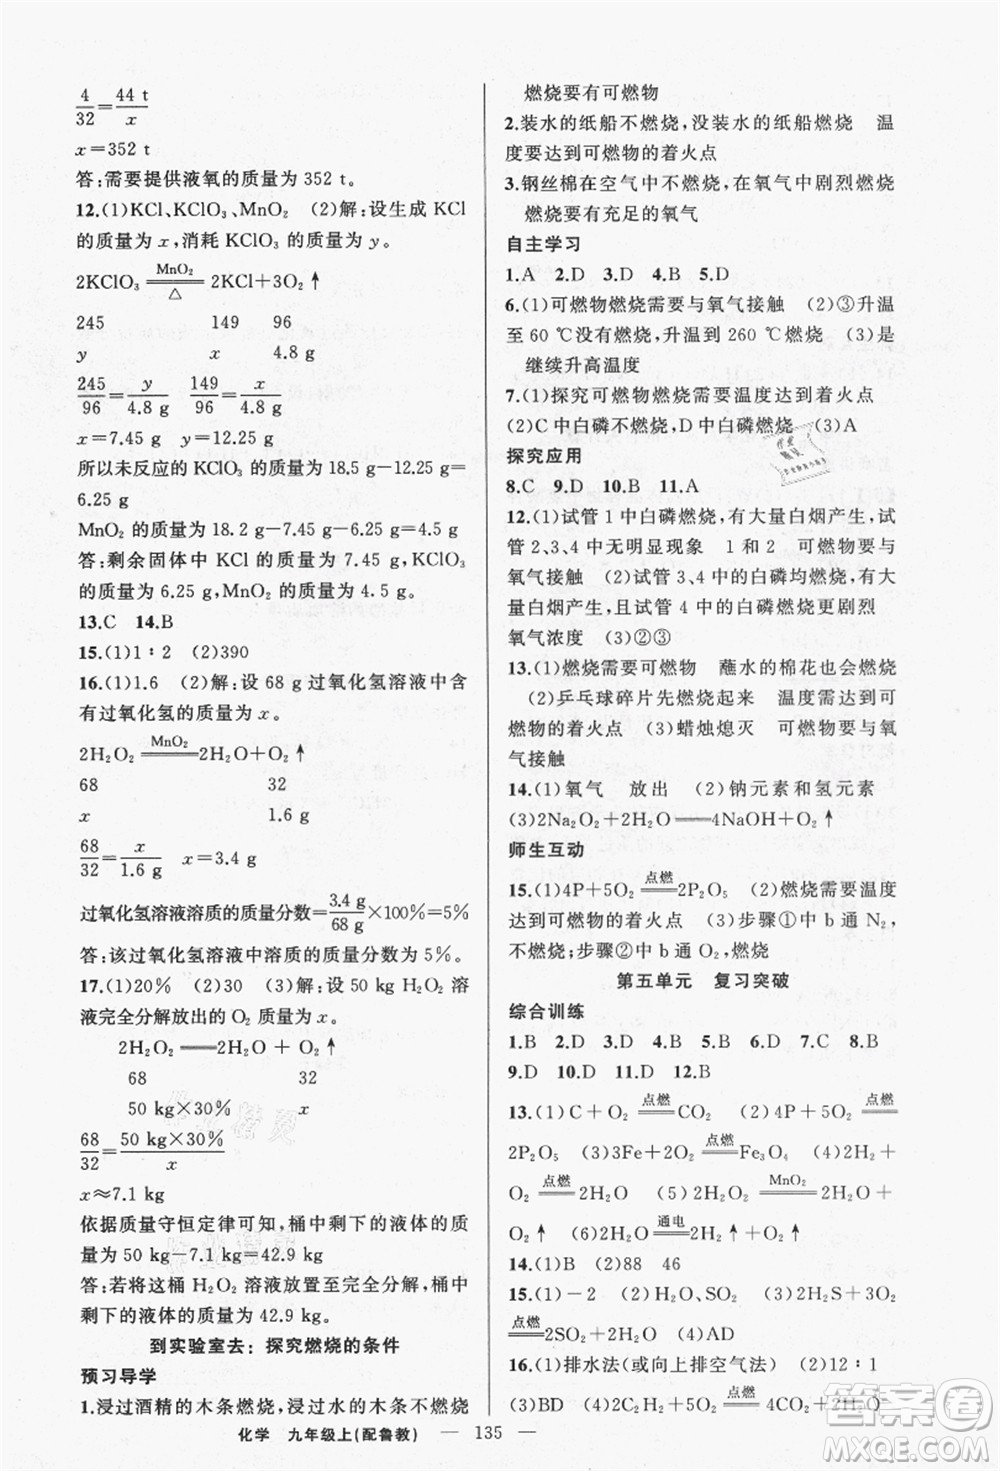 4/32=44 t/x
x=352 t
答:需要提供液氧的质量为 352 t。
12.(1)KCl、KClO₃、MnO₂ (2)解:设生成 KCl
的质量为 x,消耗 KClO₃ 的质量为 y。
2KClO₃ MnO₂══△ 2KCl+3O₂↑
245 149 96
y x 4.8 g
245/96=y/4.8 g 149/96=x/4.8 g
x=7.45 g y=12.25 g
所以未反应的 KClO₃ 的质量为 18.5 g-12.25 g=
6.25 g
MnO₂ 的质量为 18.2 g-7.45 g-6.25 g=4.5 g
答:剩余固体中 KCl 的质量为 7.45 g,KClO₃
的质量为 6.25 g,MnO₂ 的质量为 4.5 g。
13.C 14.B
15.(1)1∶2 (2)390
16.(1)1.6 (2)解:设 68 g 过氧化氢溶液中含
有过氧化氢的质量为 x。
2H₂O₂ MnO₂══ 2H₂O+O₂↑
68 32
x 1.6 g
68/32=x/1.6 g x=3.4 g
过氧化氢溶液溶质的质量分数=3.4 g/68 g×100%=5%
答:该过氧化氢溶液中溶质的质量分数为 5%。
17.(1)20% (2)> (3)解:设 50 kg H₂O₂ 溶
液完全分解放出的 O₂ 质量为 x。
2H₂O₂══2H₂O + O₂↑
68 32
50 kg×30% x
68/32=50 kg×30%/x
x≈7.1 kg
依据质量守恒定律可知,桶中剩下的液体的质量
为 50 kg-7.1 kg=42.9 kg
答:若将这桶 H₂O₂ 溶液放置至完全分解,桶中
剩下的液体的质量为 42.9 kg。
到实验室去:探究燃烧的条件
预习导学
1.浸过酒精的木条燃烧,浸过水的木条不燃烧
燃烧要有可燃物
2.装水的纸船不燃烧,没装水的纸船燃烧 温
度要达到可燃物的着火点
3.钢丝棉在空气中不燃烧,在氧气中剧烈燃烧
燃烧要有充足的氧气
自主学习
1.A 2.D 3.D 4.B 5.D
6.(1)可燃物燃烧需要与氧气接触 (2)③升温
至 60 ℃没有燃烧,升温到 260 ℃燃烧 (3)是
继续升高温度
7.(1)探究可燃物燃烧需要温度达到着火点
(2)C 中白磷不燃烧,D 中白磷燃烧 (3)A
探究应用
8.C 9.D 10.B 11.A
12.(1)试管 1 中白磷燃烧,有大量白烟产生,试
管 2、3、4 中无明显现象 1 和 2 可燃物要与
氧气接触 (2)试管 3、4 中的白磷均燃烧,有大
量白烟产生,且试管 4 中的白磷燃烧更剧烈
氧气浓度 (3)②③
13.(1)燃烧需要可燃物 蘸水的棉花也会燃烧
(2)乒乓球碎片先燃烧起来 温度需达到可
燃物的着火点 (3)蜡烛熄灭 可燃物要与氧
气接触
14.(1)氧气 放出 (2)钠元素和氢元素
(3)2Na₂O₂+2H₂O══4NaOH+O₂↑
师生互动
15.(1)4P+5O₂ 点燃══ 2P₂O₅ (2)燃烧需要温度
达到可燃物的着火点 (3)步骤①中 b 通 N₂,
不燃烧;步骤②中 b 通 O₂,燃烧
第五单元 复习突破
综合训练
1.B 2.D 3.D 4.C 5.B 6.D 7.C 8.B
9.D 10.D 11.D 12.B
13.(1)C+O₂ 点燃══ CO₂ (2)4P+5O₂ 点燃══
2P₂O₅ (3)3Fe+2O₂ 点燃══ Fe₃O₄ (4)2H₂+
O₂ 点燃══ 2H₂O (5)2H₂O₂ MnO₂══ 2H₂O+
O₂↑ (6)2H₂O 通电══ 2H₂↑+O₂↑
14.(1)B (2)88 46
15.(1)-2 (2)H₂O、SO₂ (3)2H₂S+3O₂
点燃══ 2SO₂+2H₂O (4)AD
16.(1)排水法(或向上排空气法) (2)12∶1
(3)BD (4)2CO+O₂ 点燃══ 2CO₂
化学 九年级上(配鲁教) — 135 —
答案卷